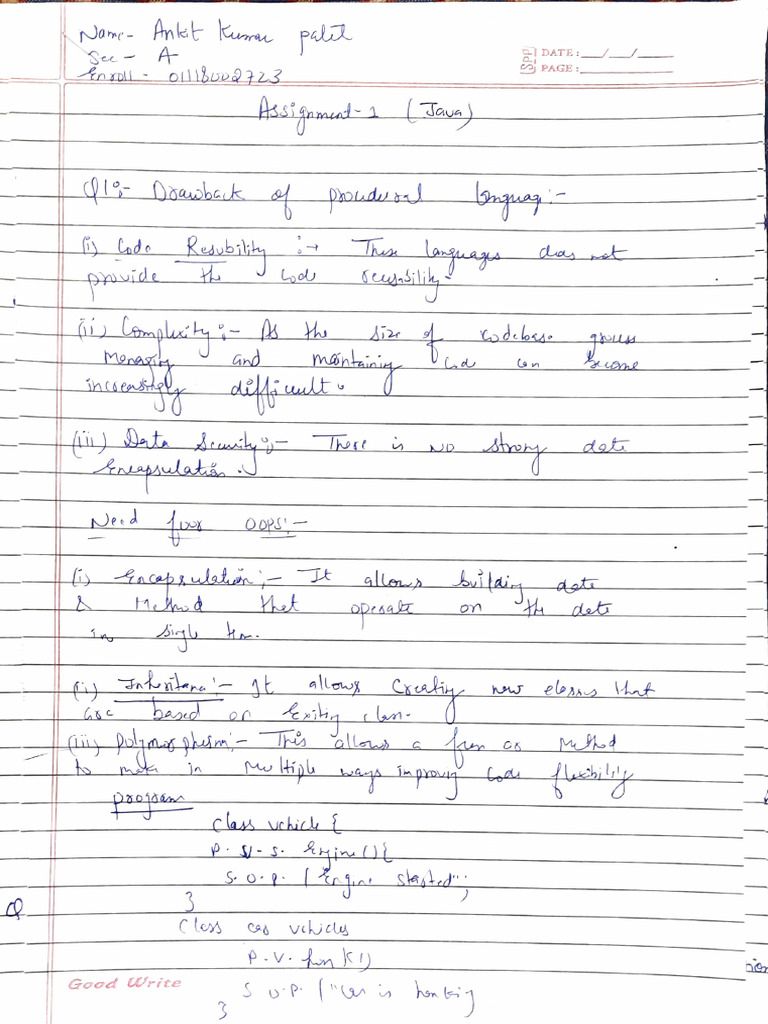 Name- Ankit Kumar palit
Sec - A
Enroll - 01118002723
SPP DATE: __/__/__
PAGE: ________
Assignment-1 (Java)
Q1:- Drawback of procedural language:-
(i) Code Resubility :→ These languages does not
provide the code reusability.
(ii) Complexity:- As the size of codebase grows
Managing and maintaining code can become
increasingly difficult.
(iii) Data Security:- There is no strong data
Encapsulation.
Need for OOPS:-
(i) Encapsulation:- It allows building data
& Method that operate on the data
in single
(ii) Inheritana:- It allows Creating new classes that
are based on Exiting class.
(iii) Polymorphism:- This allows a fun as Method
to make in Multiple ways improving Code flexibility
program
class vehicle {
P. S. Engine() {
S.O.P. ( Engine started";
}
Q
Class car vehicles
P.V. honk()
S O.P. ("car is honking
}
Good Write